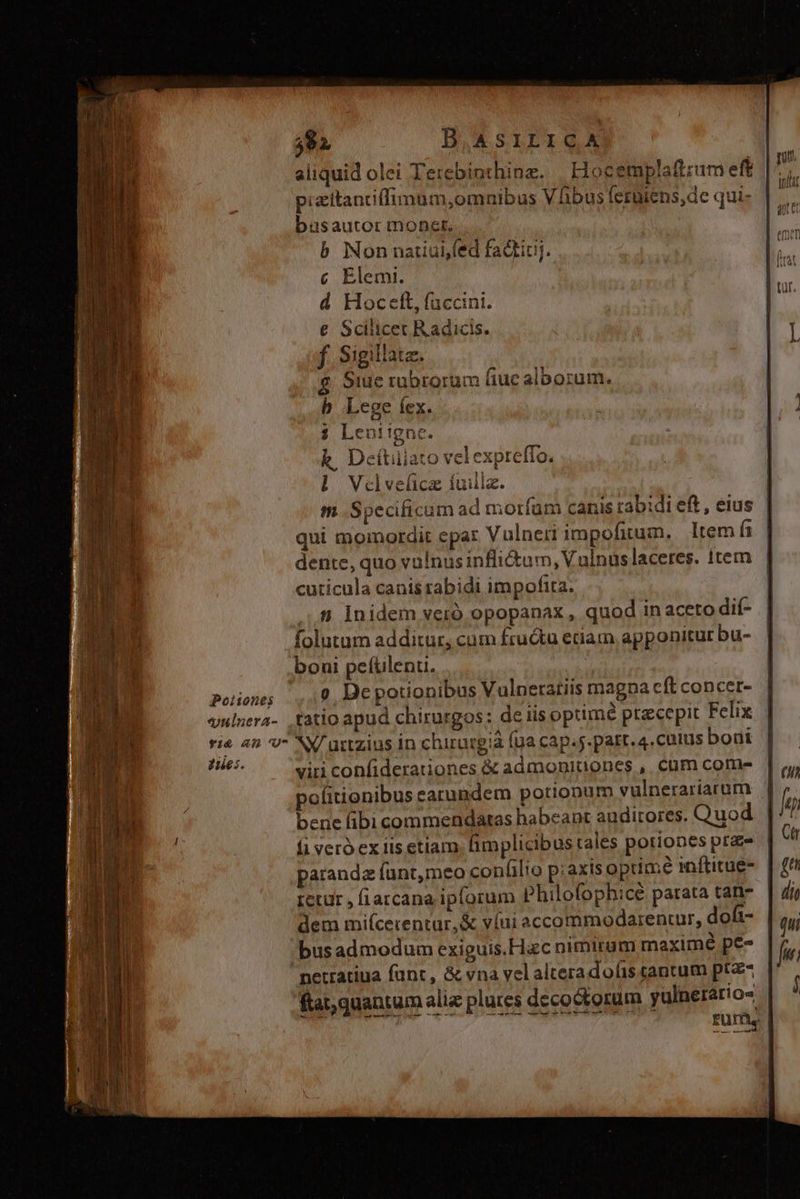 382 BASILICA
aliquid olei Terebinthinæ. Hocemplastrum est
præstantissimum, omnibus Vsibus seruiens, de qui-
busautor monet.
b Non natiui, sed factitij.
c Elemi.
d Hoc est, succini.
e Scilicet Radicis.
f Sigillatæ.
g Siue rubrorum siue alborum.
h Lege sex.
i Lentigne.
k Destillato vel expresso.
l Vel vesicæ suillæ.
m Specificum ad morsum canis rabidi est, eius
qui momordit epar Vulneri impositum. Item si
dente, quo vulnus inflictum, Vulnus laceres. Item
cuticula canis rabidi imposita.
n Inidem verò opopanax, quod in aceto dis-
solutum additur, cum fructu etiam apponitur bu-
boni pestilenti.
Potiones
vulnera-
riæ an v-
tiles.
o De potionibus Vulnerariis magna est concer-
tatio apud chirurgos: de iis optimè præcepit Felix
Wurtzius in chirurgiâ sua cap. 5. part. 4. cuius boni
viri considerationes & admonitiones, cum com-
positionibus earundem potionum vulnerariarum
bene sibi commendatas habeant auditores. Quod
si verò ex iis etiam simplicibus tales potiones præ-
parandæ sunt, meo consilio praxis optimè institue-
retur, si arcana ipsorum Philosophicè parata tan-
dem miscerentur, & vsui accommodarentur, dosi-
bus admodum exiguis. Hæc nimirum maximè pe-
netratiua sunt, & vna vel altera dosis tantum præ-
stat, quantum aliæ plures decoctorum vulnerario-
rum,